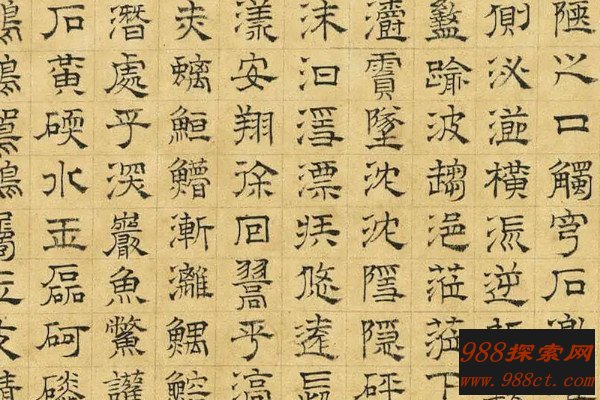 陿之口觸穹石激
側泌橫流逆折
盭踰波趨浥蒞蒞下
灂霣墜沈沈隱隱砰
沫汩漂疾悠遠長
漾安翔徐回翯乎滈
赤螭䱭䲛漸離鰅
潛處乎深巖魚鱉讙
石黃碝水玉磊砢磷
988探索网
www.988ct.com